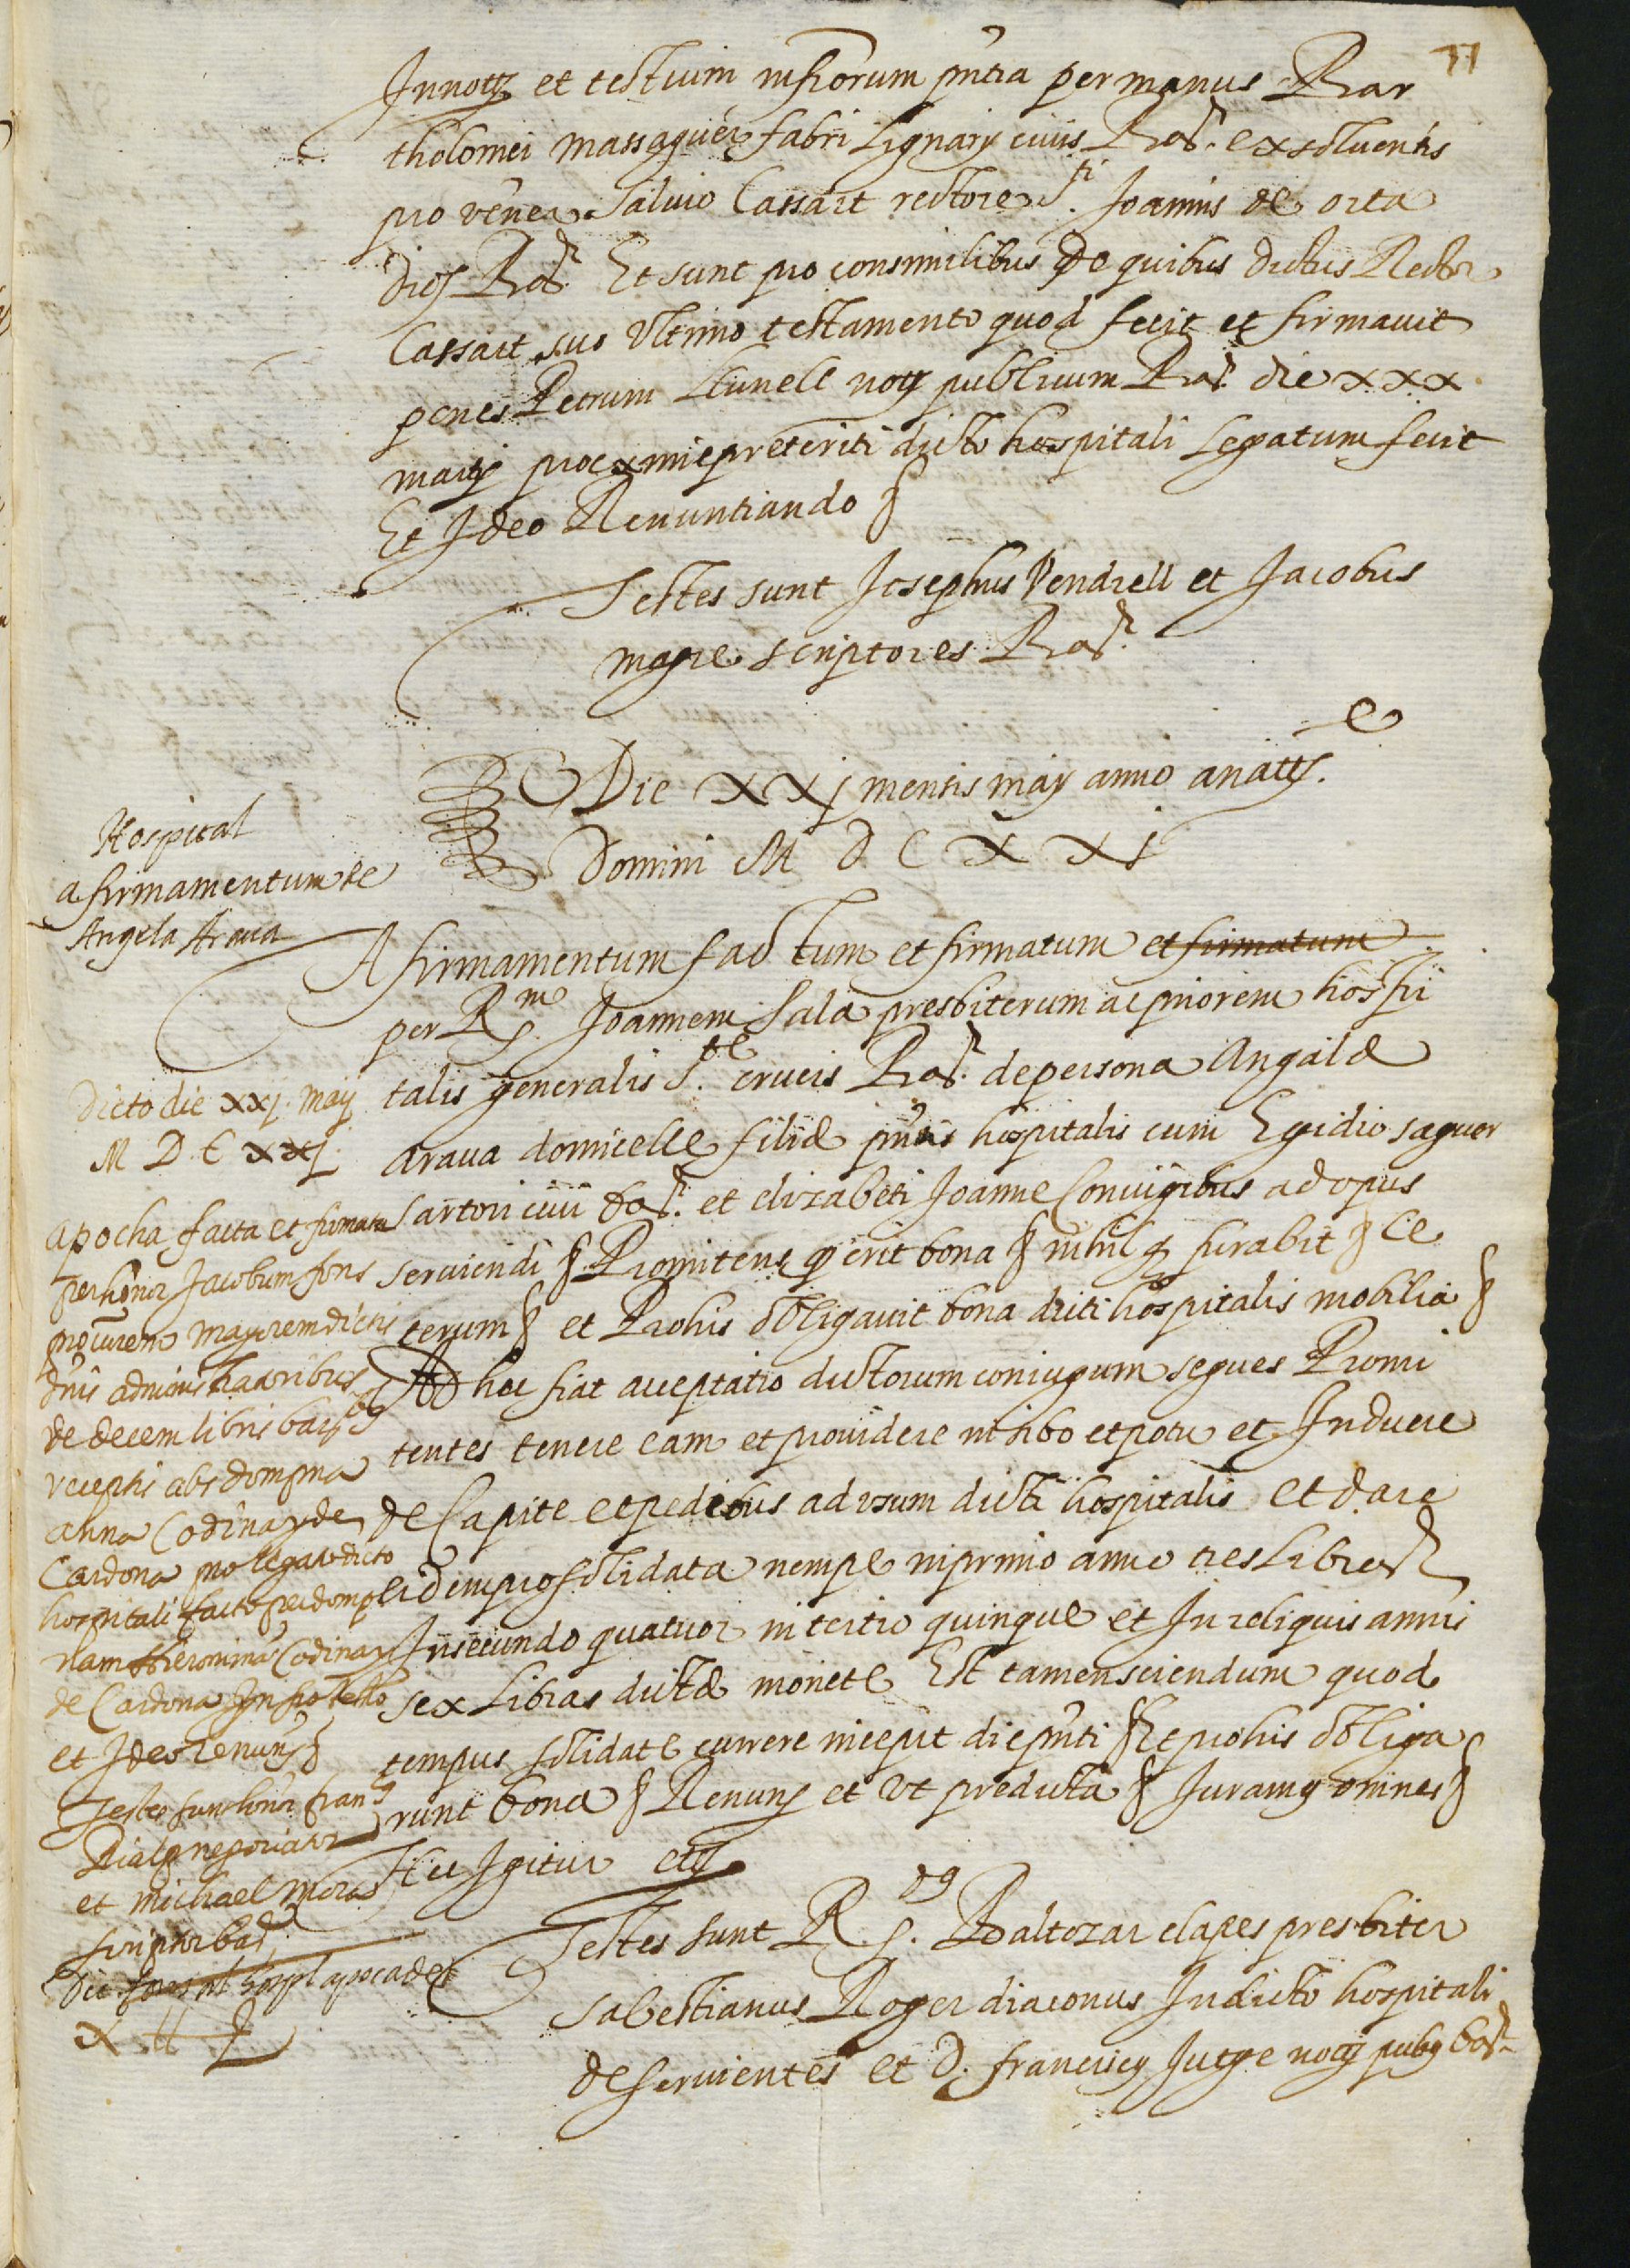 77
Innotꝫ et testium infrorum pntia per manus Bar
tholomei massaguer fabri Lignarij civis Bar. exsolventis
pro venea. Salvio Cassart rectore Sti. Joannis de orta
dios Bar. Et sunt pro consimilibus de quibus dictus Rector
Cassart suo Ultimo testamento quod fecit et firmavit
penes Petrum Llunell noty publicum Bar. die xxx
martij proxime preteriti dicto hospitali Legatum fecit
Et Ideo Renuntiando §
Testes sunt Josephus Vendrell et Jacobus
magre scriptores Bar.
Die xxj mensis maij anno a natte.
Domini M D C X X j
Hospital
afirmamentum de
Angela Arava
Afirmamentum factum et firmatum et firmatum
per Rm. Joannem Sala presbiterum ac priorem hospi
talis generalis Ste. crucis Bar. de persona Angalæ
arava domicelle filiæ pntis hospitalis cum Egidio saguer
sartori civi bar. et elizabeti Joanne Coniugibus ad opus
serviendi § Promitens q erit bona § nihil q furabit § Ce
terum § et Prohis obligavit bona dicti hospitalis mobilia §
Ad hec fiat acceptatio dictorum coniugum segues Promi
tentes tenere eam et providere in sibo et potu et Induere
de Capite et pedibus ad usum dicti hospitalis et dare
eidem pro solidata nempe in primo anno tres Libras
In secundo quatuor in tertio quinque et In reliquis annis
sex Libras dictæ monete Est tamen sciendum quod
tempus solidate currere incepit die pnti § Et prohis obliga
runt bona § Renuns et ut predicta § Juramꝫ omnes §
Hec Igitur etc
Testes sunt R ds. Baltezar clapes presbiter
sabestianus Roger diaconus In dicto hospitali
deservientes et D. franciscꝫ Jutge notꝫ pubꝫ bar.
Dicto die xxj. maij
M D. C xxj.
apocha facta et firmata
per honor Jacobum fons
procurem mayorem dictis
dnis administratoribus
de decem libris bar
receptis abs dompna
anna Codina y de
Cardona pro legato dicto
hospitali facto per domp
nam Hieronima Codina y
de Cardona In suo testo
et Ideo renuns §
Testes sunt honor frans
Rialp negoriator
et michael moras
scriptor bar
dit fons al hospl apoca de
x ll